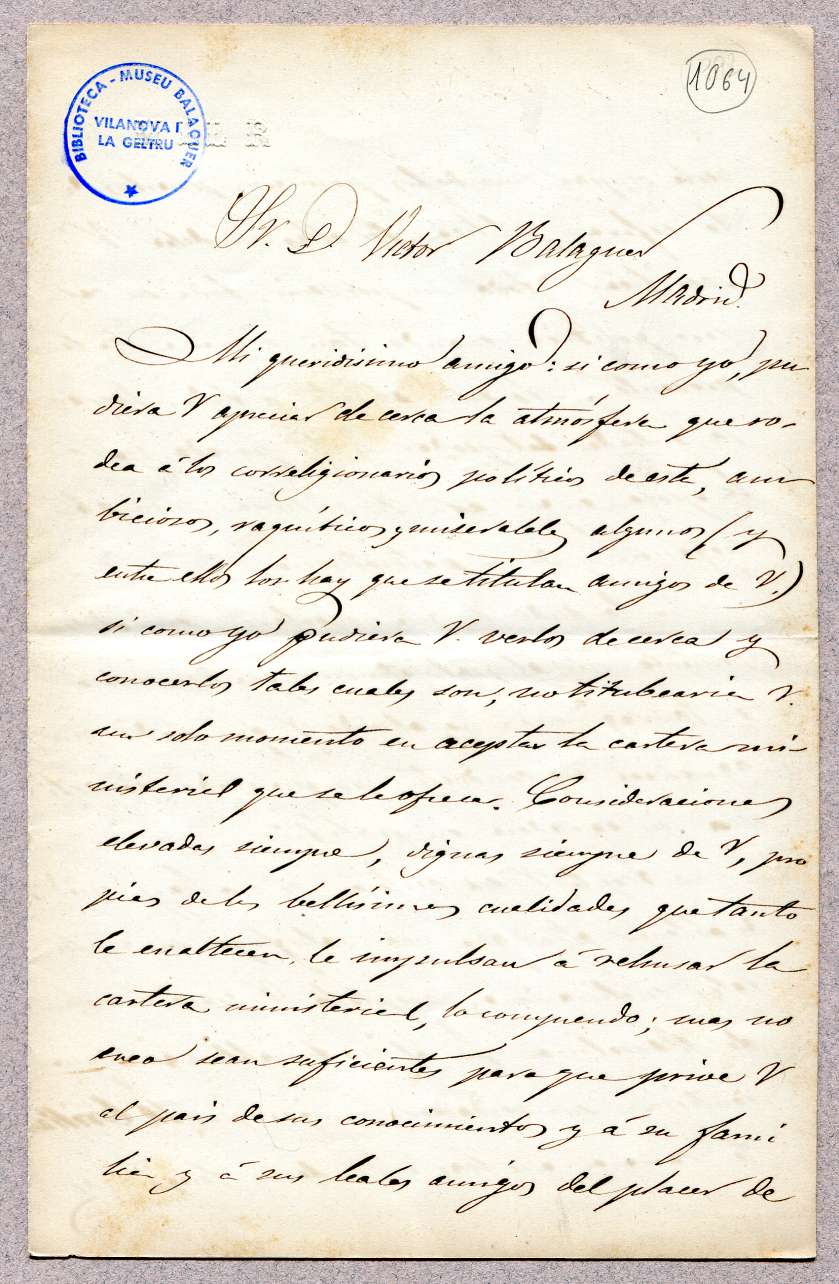 1064
BIBLIOTECA - MUSEU BALAGUER
VILANOVA I
LA GELTRU
Sr. D. Victor Balaguer
Madrid.
Mi queridisimo amigo: si como yo, pu
diera V apreciar de cerca la atmósfera que ro-
dea á los correligionarios políticos de esta, am
biciosos, raquíticos y miserables algunos (y
entre ellos los hay que se titulan amigos de V.)
si como yo pudiera V. verlos de cerca y
conocerlos tales cuales son, no titubearia V.
un solo momento en aceptar la cartera mi-
nisterial que se le ofrece. Consideraciones
elevadas siempre, dignas siempre de V, pro
pias de las bellísimas cualidades que tanto
le enaltecen, le impulsan á rehusar la
cartera ministerial, lo comprendo; mas no
creo sean suficientes para que prive V
al pais de sus conocimientos y á su fami
lia y á sus leales amigos del placer de